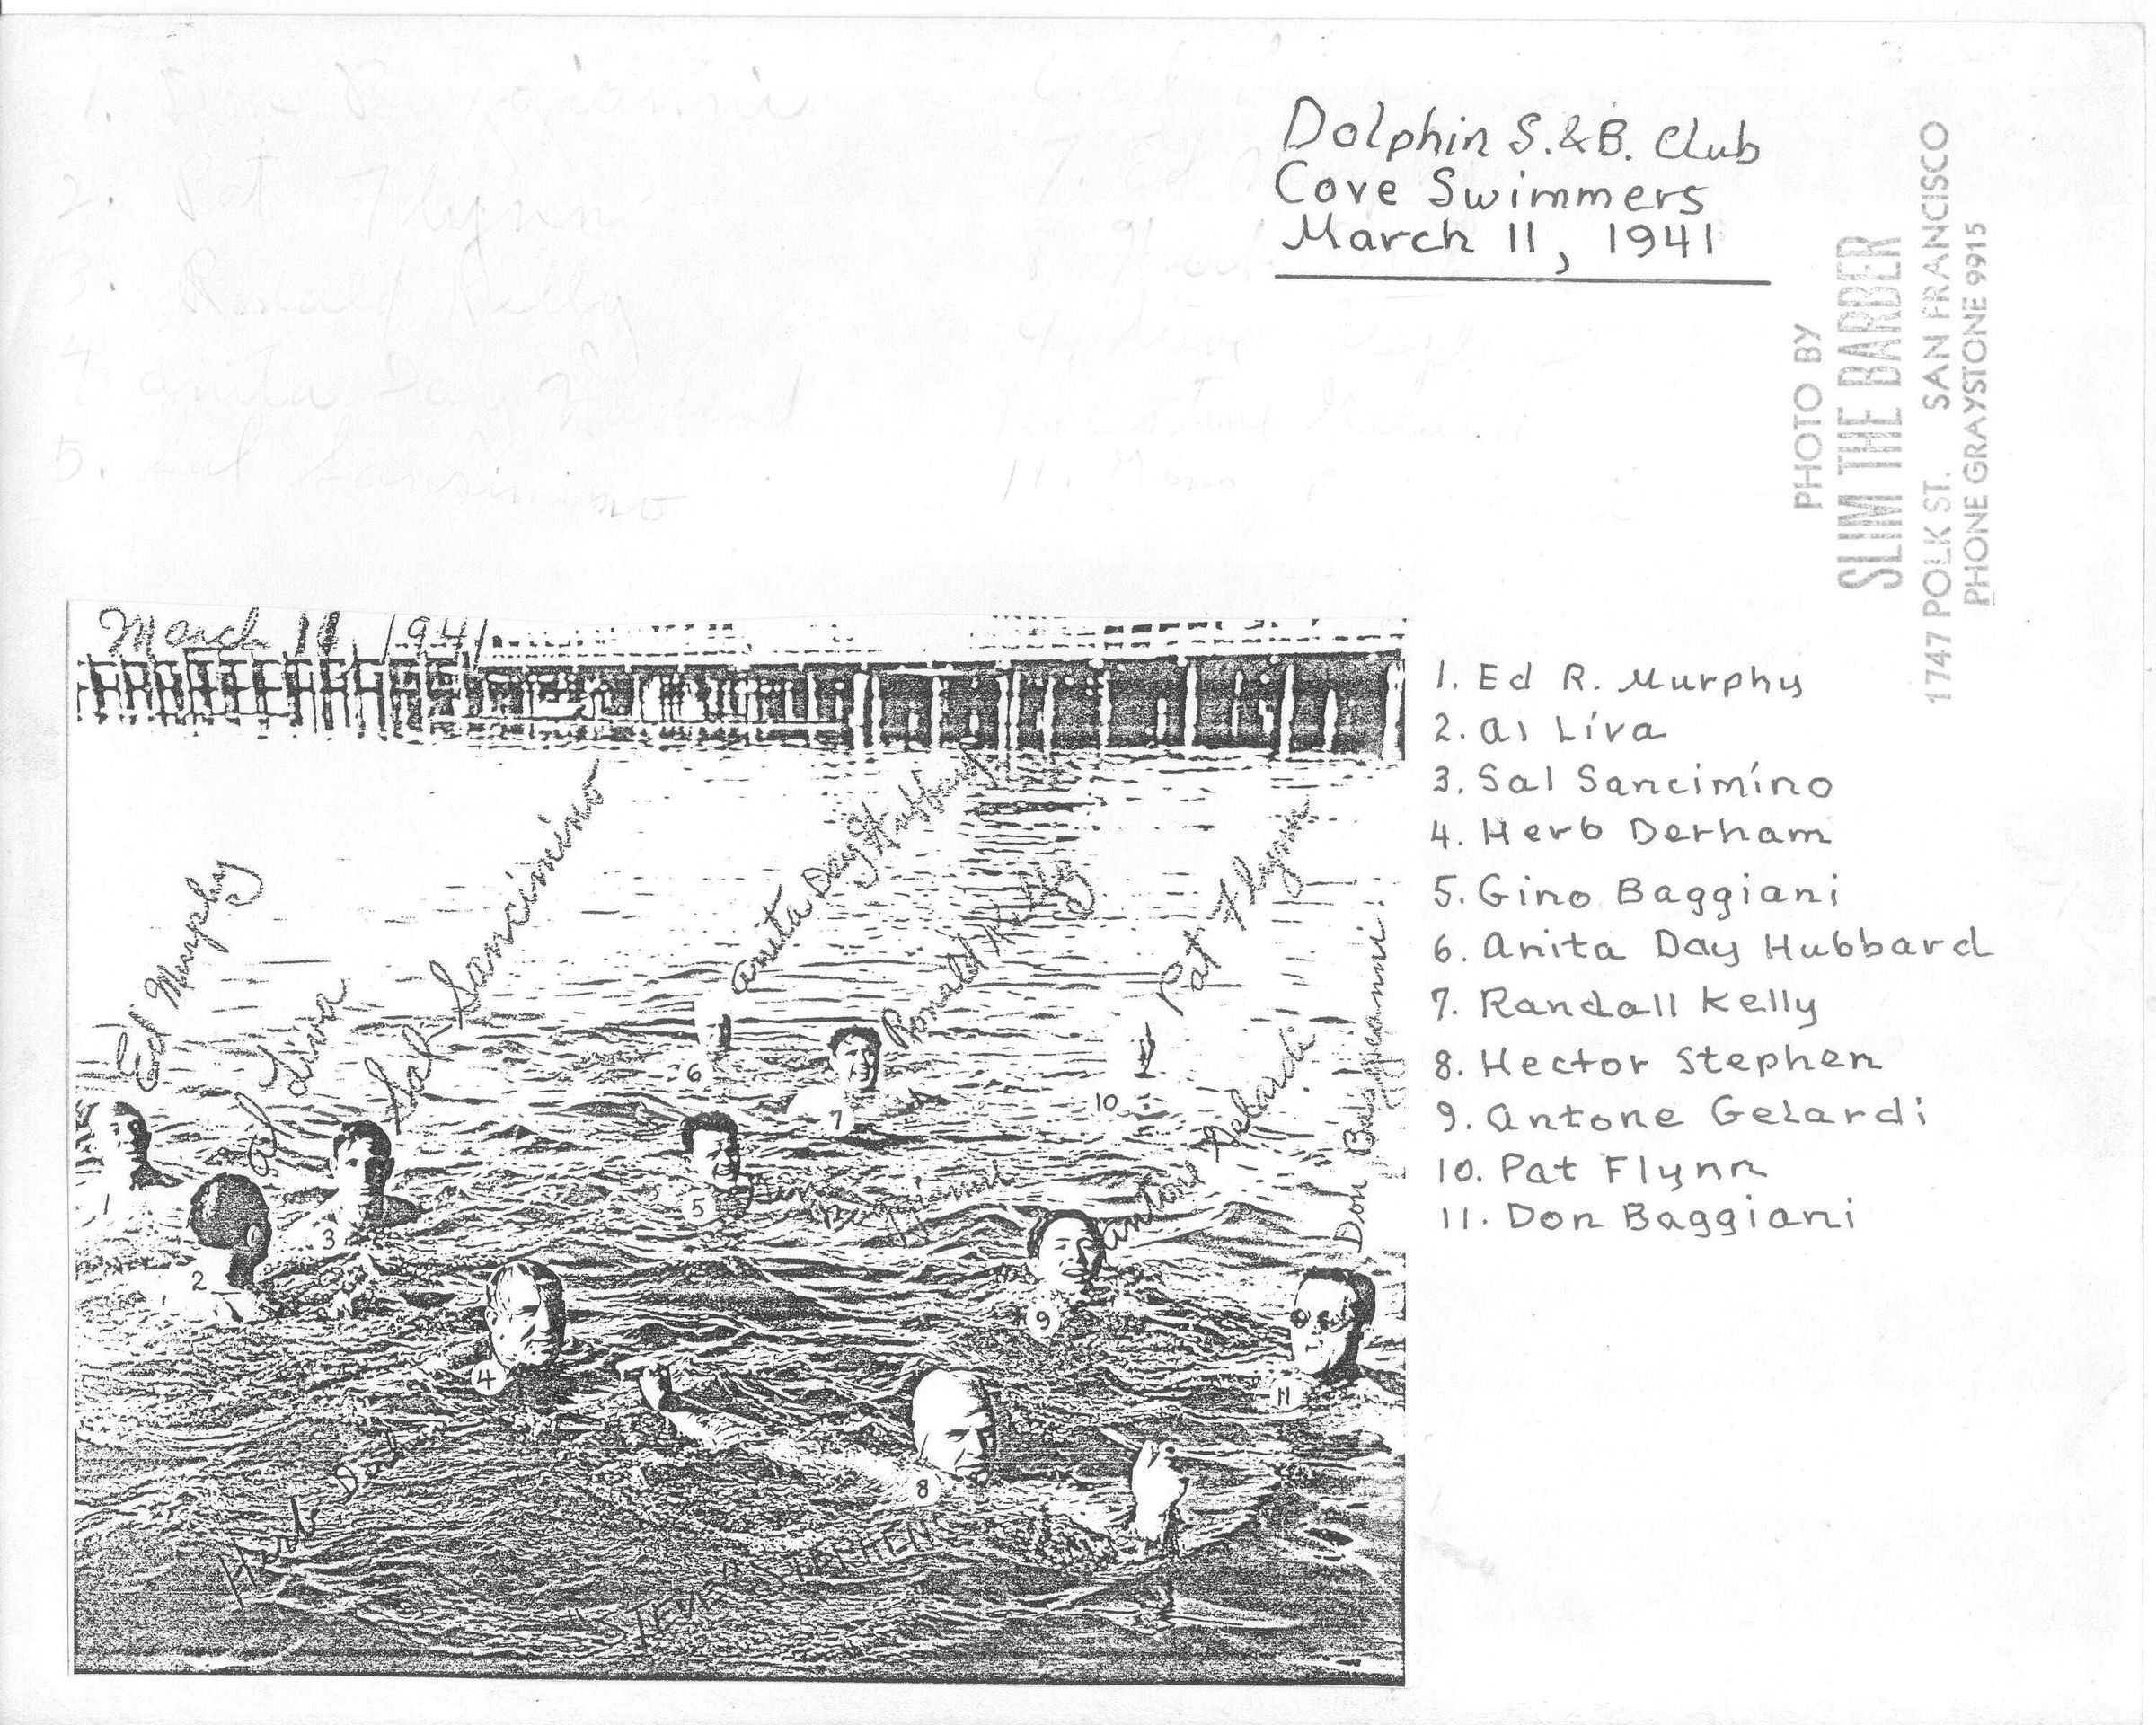 Dolphin S.&B. Club
Cove Swimmers
March 11, 1941
PHOTO BY
SLIM THE BARBER
1747 POLK ST. SAN FRANCISCO
PHONE GRAYSTONE 9915
1.
2. Pat Flynn
3. Ronald Kelly
4. Anita Day
5. Sal Sancimino
7. Ed
11.
March 11, 1941
Ed Murphy
Al Liva
Sal Sancimino
Anita Day Hubbard
Ronald Kelly
Pat Flynn
Antone Gelardi
Don Baggianni
Baggianni
Herb
"STEVE" STEPHENS
1
2
3
4
5
6
7
8
9
10
11
1. Ed R. Murphy
2. Al Liva
3. Sal Sancimino
4. Herb Derham
5. Gino Baggiani
6. Anita Day Hubbard
7. Randall Kelly
8. Hector Stephen
9. Antone Gelardi
10. Pat Flynn
11. Don Baggiani